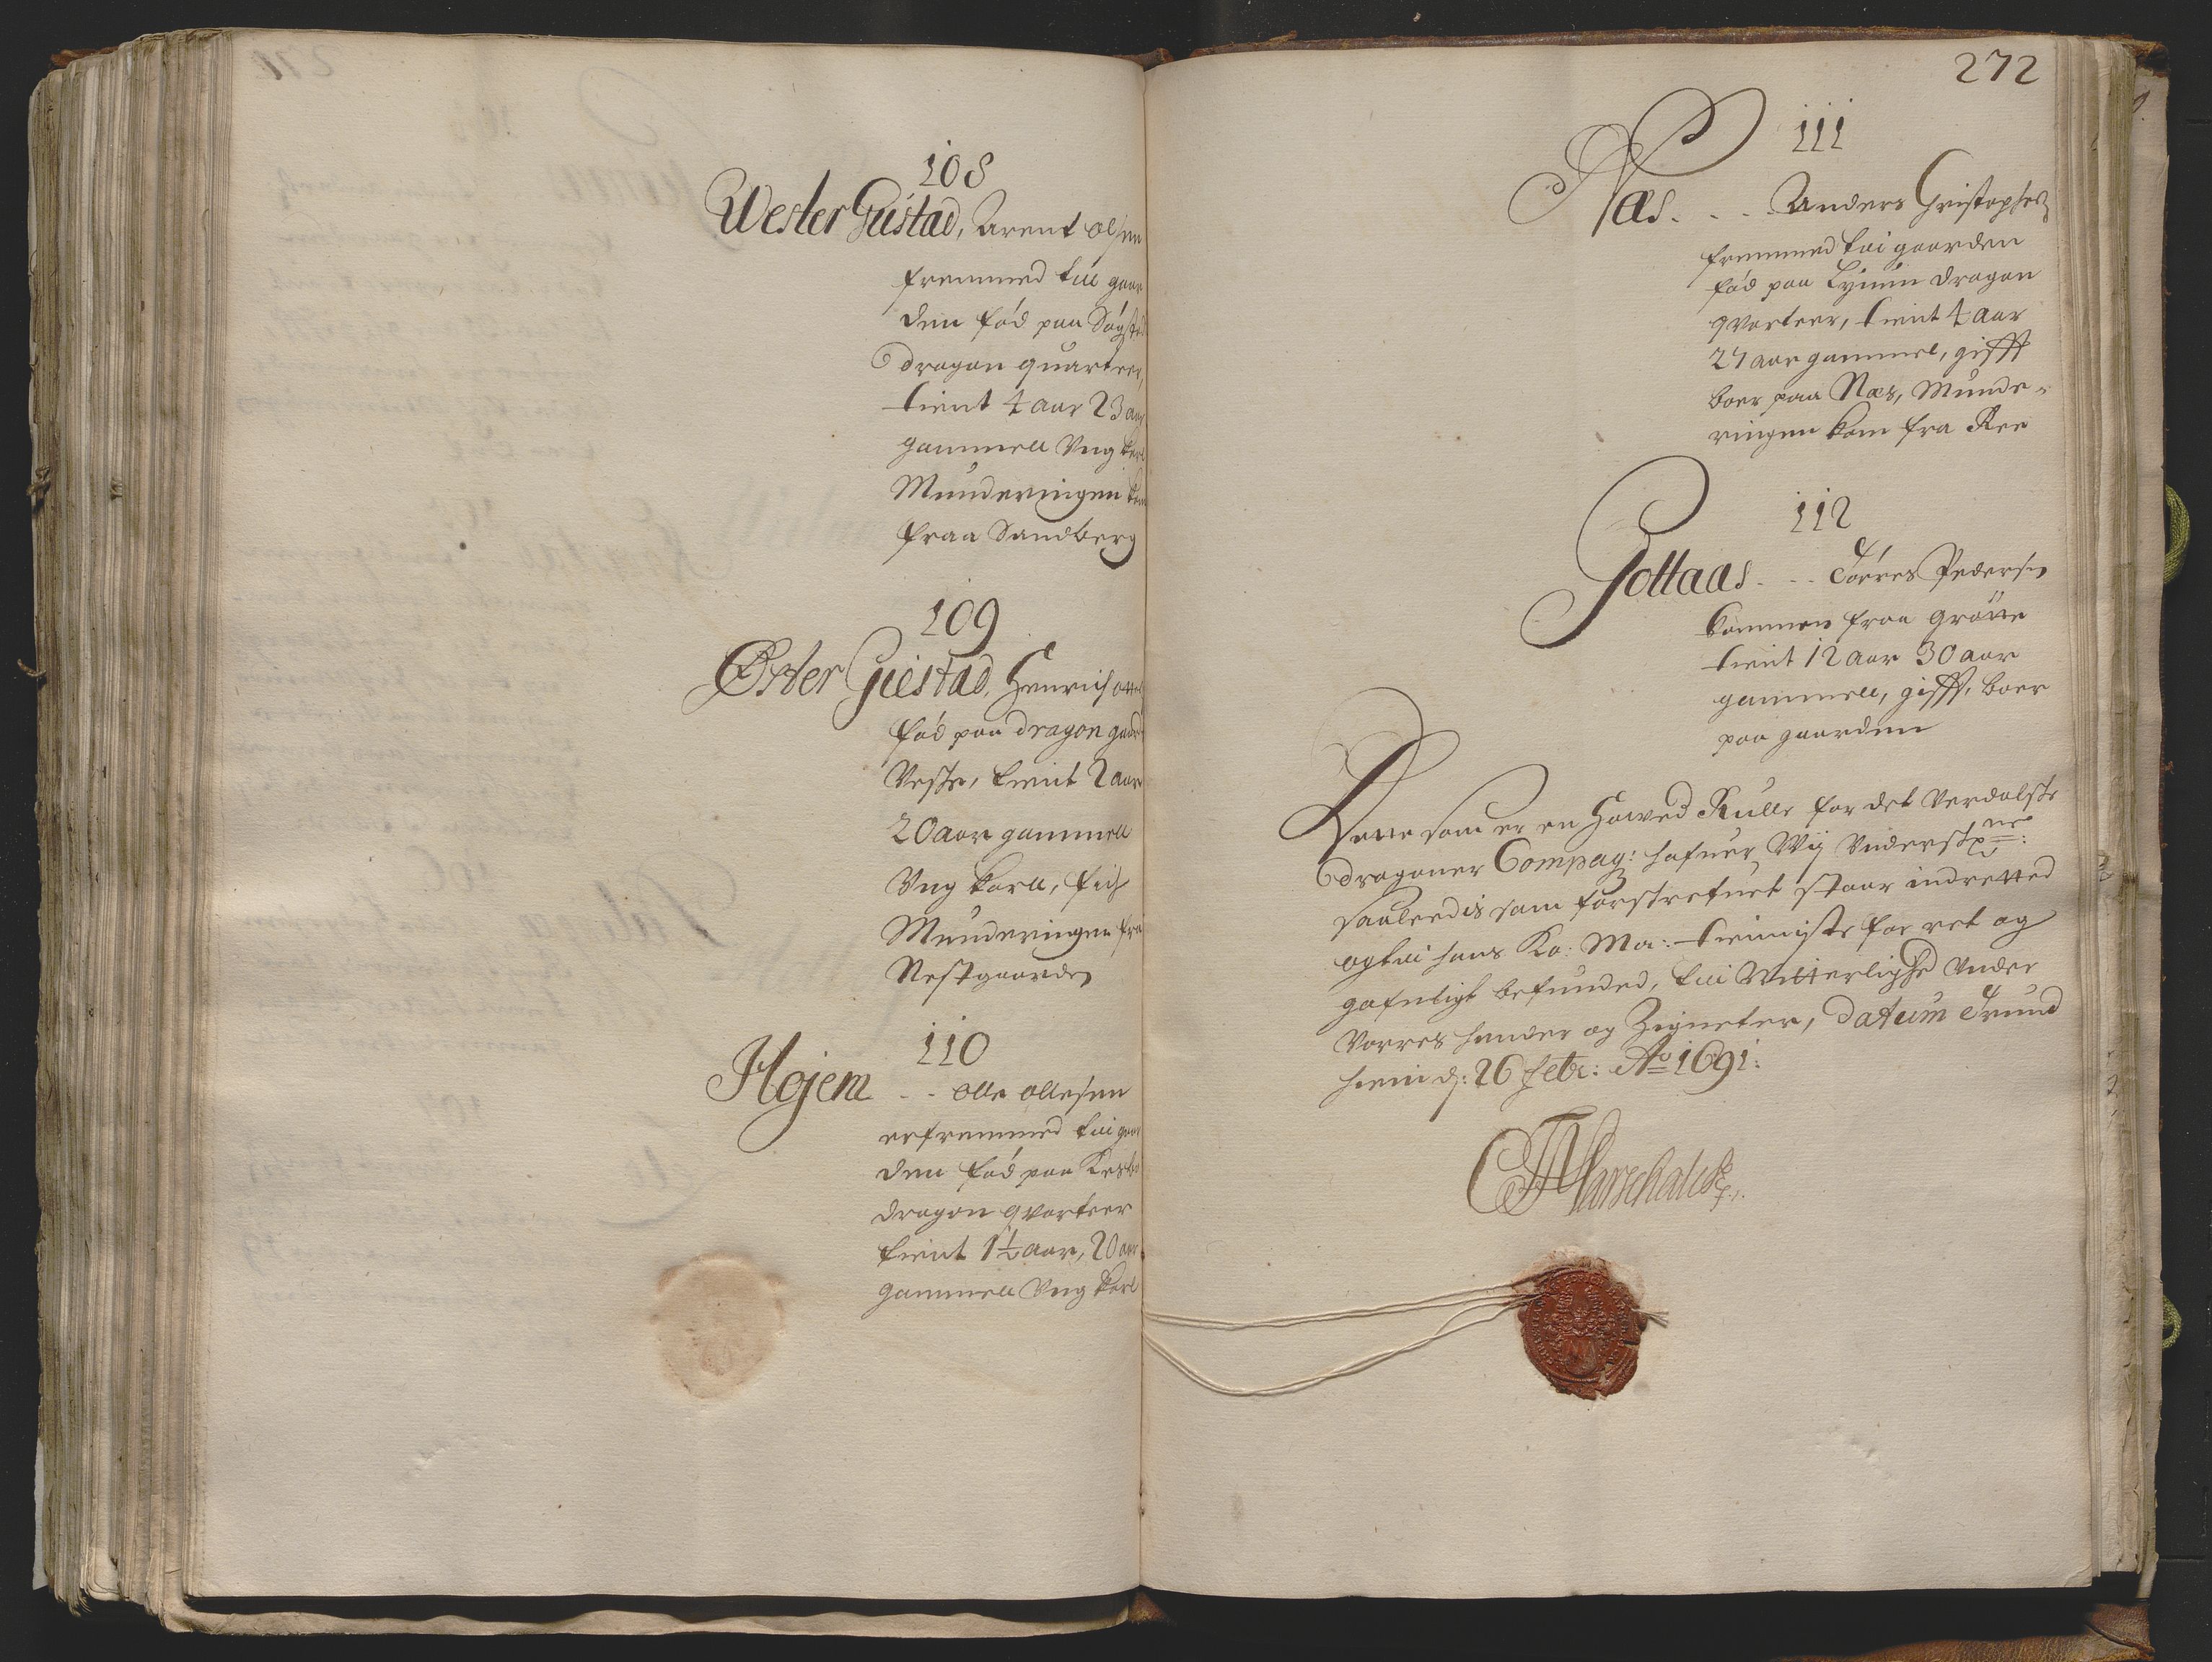 108
Wester Gustad, Arent olsen
fremmed till gaar
den fód paa
dragon quarteer,
tient 4 aar 23 aar
gammell Ung karl
Munderingen kom
fraa Sandberg
109
Øster Giestad, Henrich
fód paa dragon gaard
Veste, tient 2 aar
20 aar gammell
Ung karll, fich
Munderingen fra
Nestgaarden
110
Hojem - - olle ollesen
erfremmed till gaar
den fód paa
dragon qvarteer
tient 1½ aar, 20 aar
gammell Ung karl
272
111
Næs. - - . Anders Christophers
fremmed till gaarden
fód paa Lynum dragon
qvarteer, tient 4 aar
27 aar gammel, gifft
boer paa Næs, Munde-
ringen kom fra Ree
112
Jottaas. - - Torres Pedersen
kommen fraa
tient 12 aar 30 aar
gammell, gifft, boer
paa gaarden
Dette som er en Howed Rulle for det Verdalske
dragoner Compag: hafuer Wij Underskr
saaleedis som forskrefuet staar indretted
og till hans Ko: Ma: tienniste for ret og
gafnligt befunded, till Witterlighed Under
Vorres hender og Zigneter, datum Trund
hiem d: 26 Febr: Ao 1691:
Marschalck